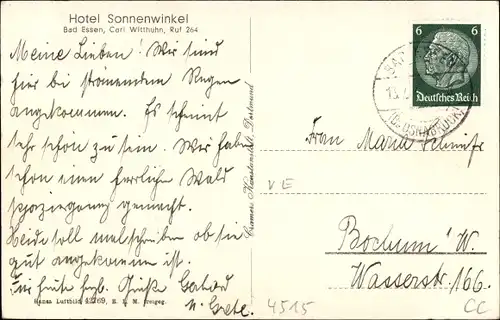 Hotel Sonnenwinkel
Bad Essen, Carl Witthuhn, Ruf 264
Meine Lieben! Wir sind
hier bei strömendem Regen
angekommen. Es scheint
sehr schön zu sein. Wir haben
schon einen herrlichen Wald
spaziergang gemacht.
Heide soll mal schreiben ob sie
gut angekommen ist.
Für heute herzl. Grüße
u. Grete.
Hansa Luftbild 42769, R. L. M. freigeg.
Cramers Kunstanstalt, Dortmund
6 6
Deutsches Reich
BAD ESSEN
(Bz. OSNABRÜCK)
Frau Maria
Bochum i/W.
Wasserstr. 166.
VE
4515
CC